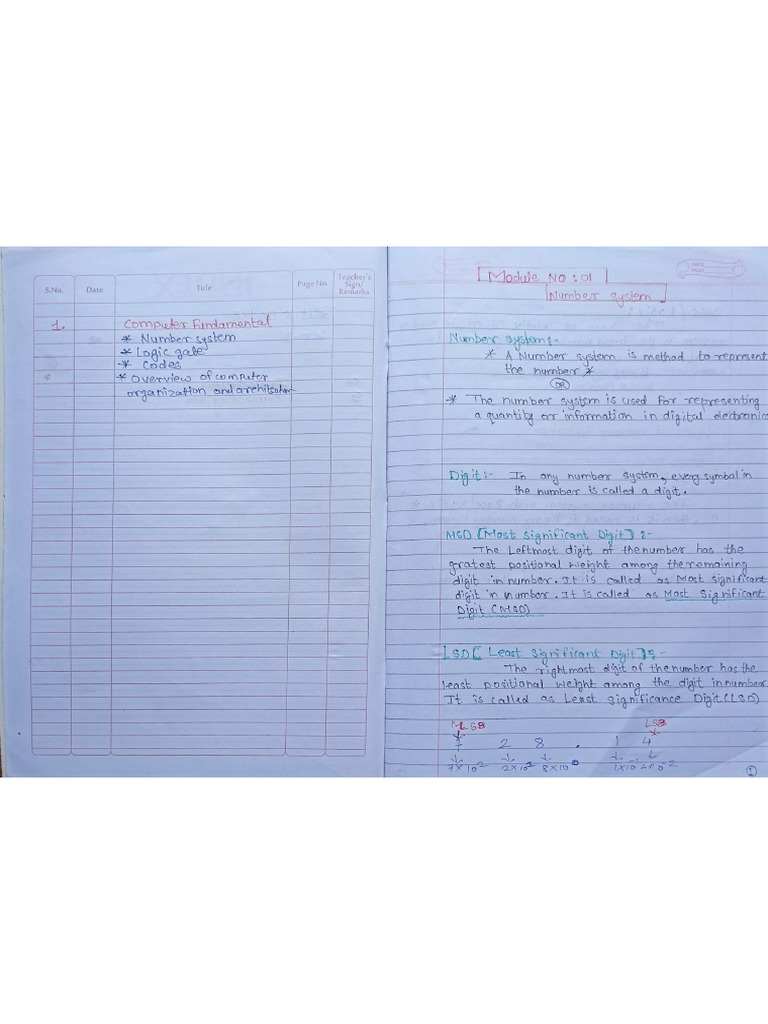 S.No.
Date
Title
Page No.
Teacher's
Sign/
Remarks
1. Computer Fundamental
* Number system
* Logic gate
* Codes
* Overview of computer
organization and architecture
Module NO : 01
Number system
Number system:-
* A Number system is method to represent
the number *
OR
* The number system is used for representing
a quantity or information in digital electronics
Digit:- In any number system, every symbol in
the number is called a digit.
MSD [Most Significant Digit] :-
The Leftmost digit of the number has the
gratest positional weight among the remaining
digit in number. It is called as Most significant
digit in number. It is called as Most Significant
Digit (MSD)
LSD [ Least Significant Digit] :-
The rightmost digit of the number has the
least positional weight among the digit in number
It is called as Least Significance Digit (LSD)
7 2 8 . 1 4
7×10² 2×10¹ 8×10⁰
1